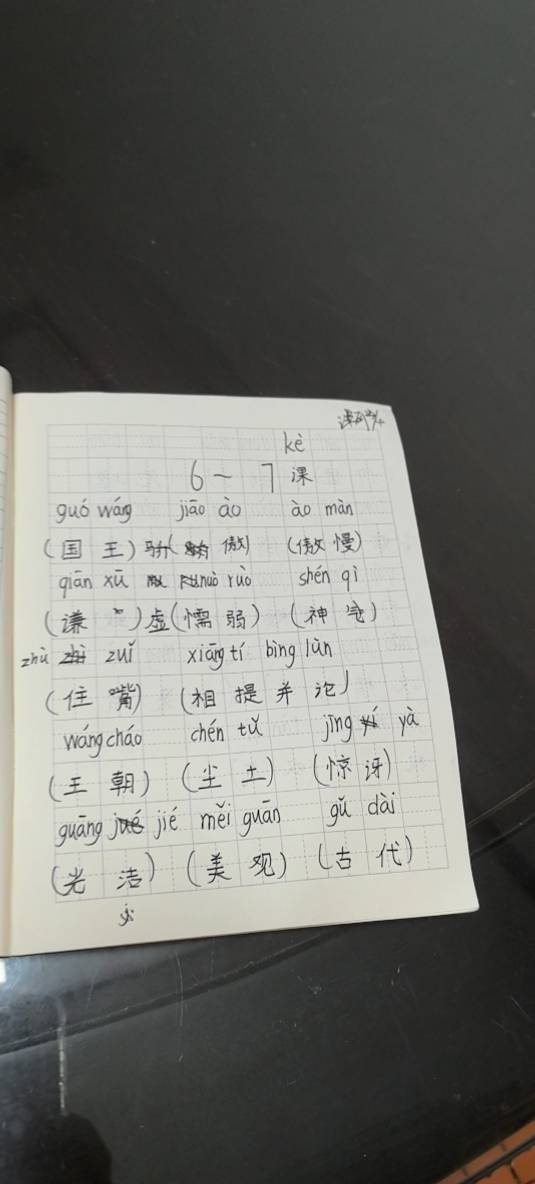 kè
6 — 7 课
guó wáng jiāo ào ào màn
(国 王) 骄( 傲) (傲 慢)
qiān xū nuò ruò shén qì
(谦 ) 虚(懦 弱) (神 气)
zhù zuǐ xiāng tí bìng lùn
(住 嘴) (相 提 并 论)
wáng cháo chén tǔ jīng yà
(王 朝) (尘 土) (惊 讶)
guāng jié měi guān gǔ dài
(光 洁) (美 观) (古 代)